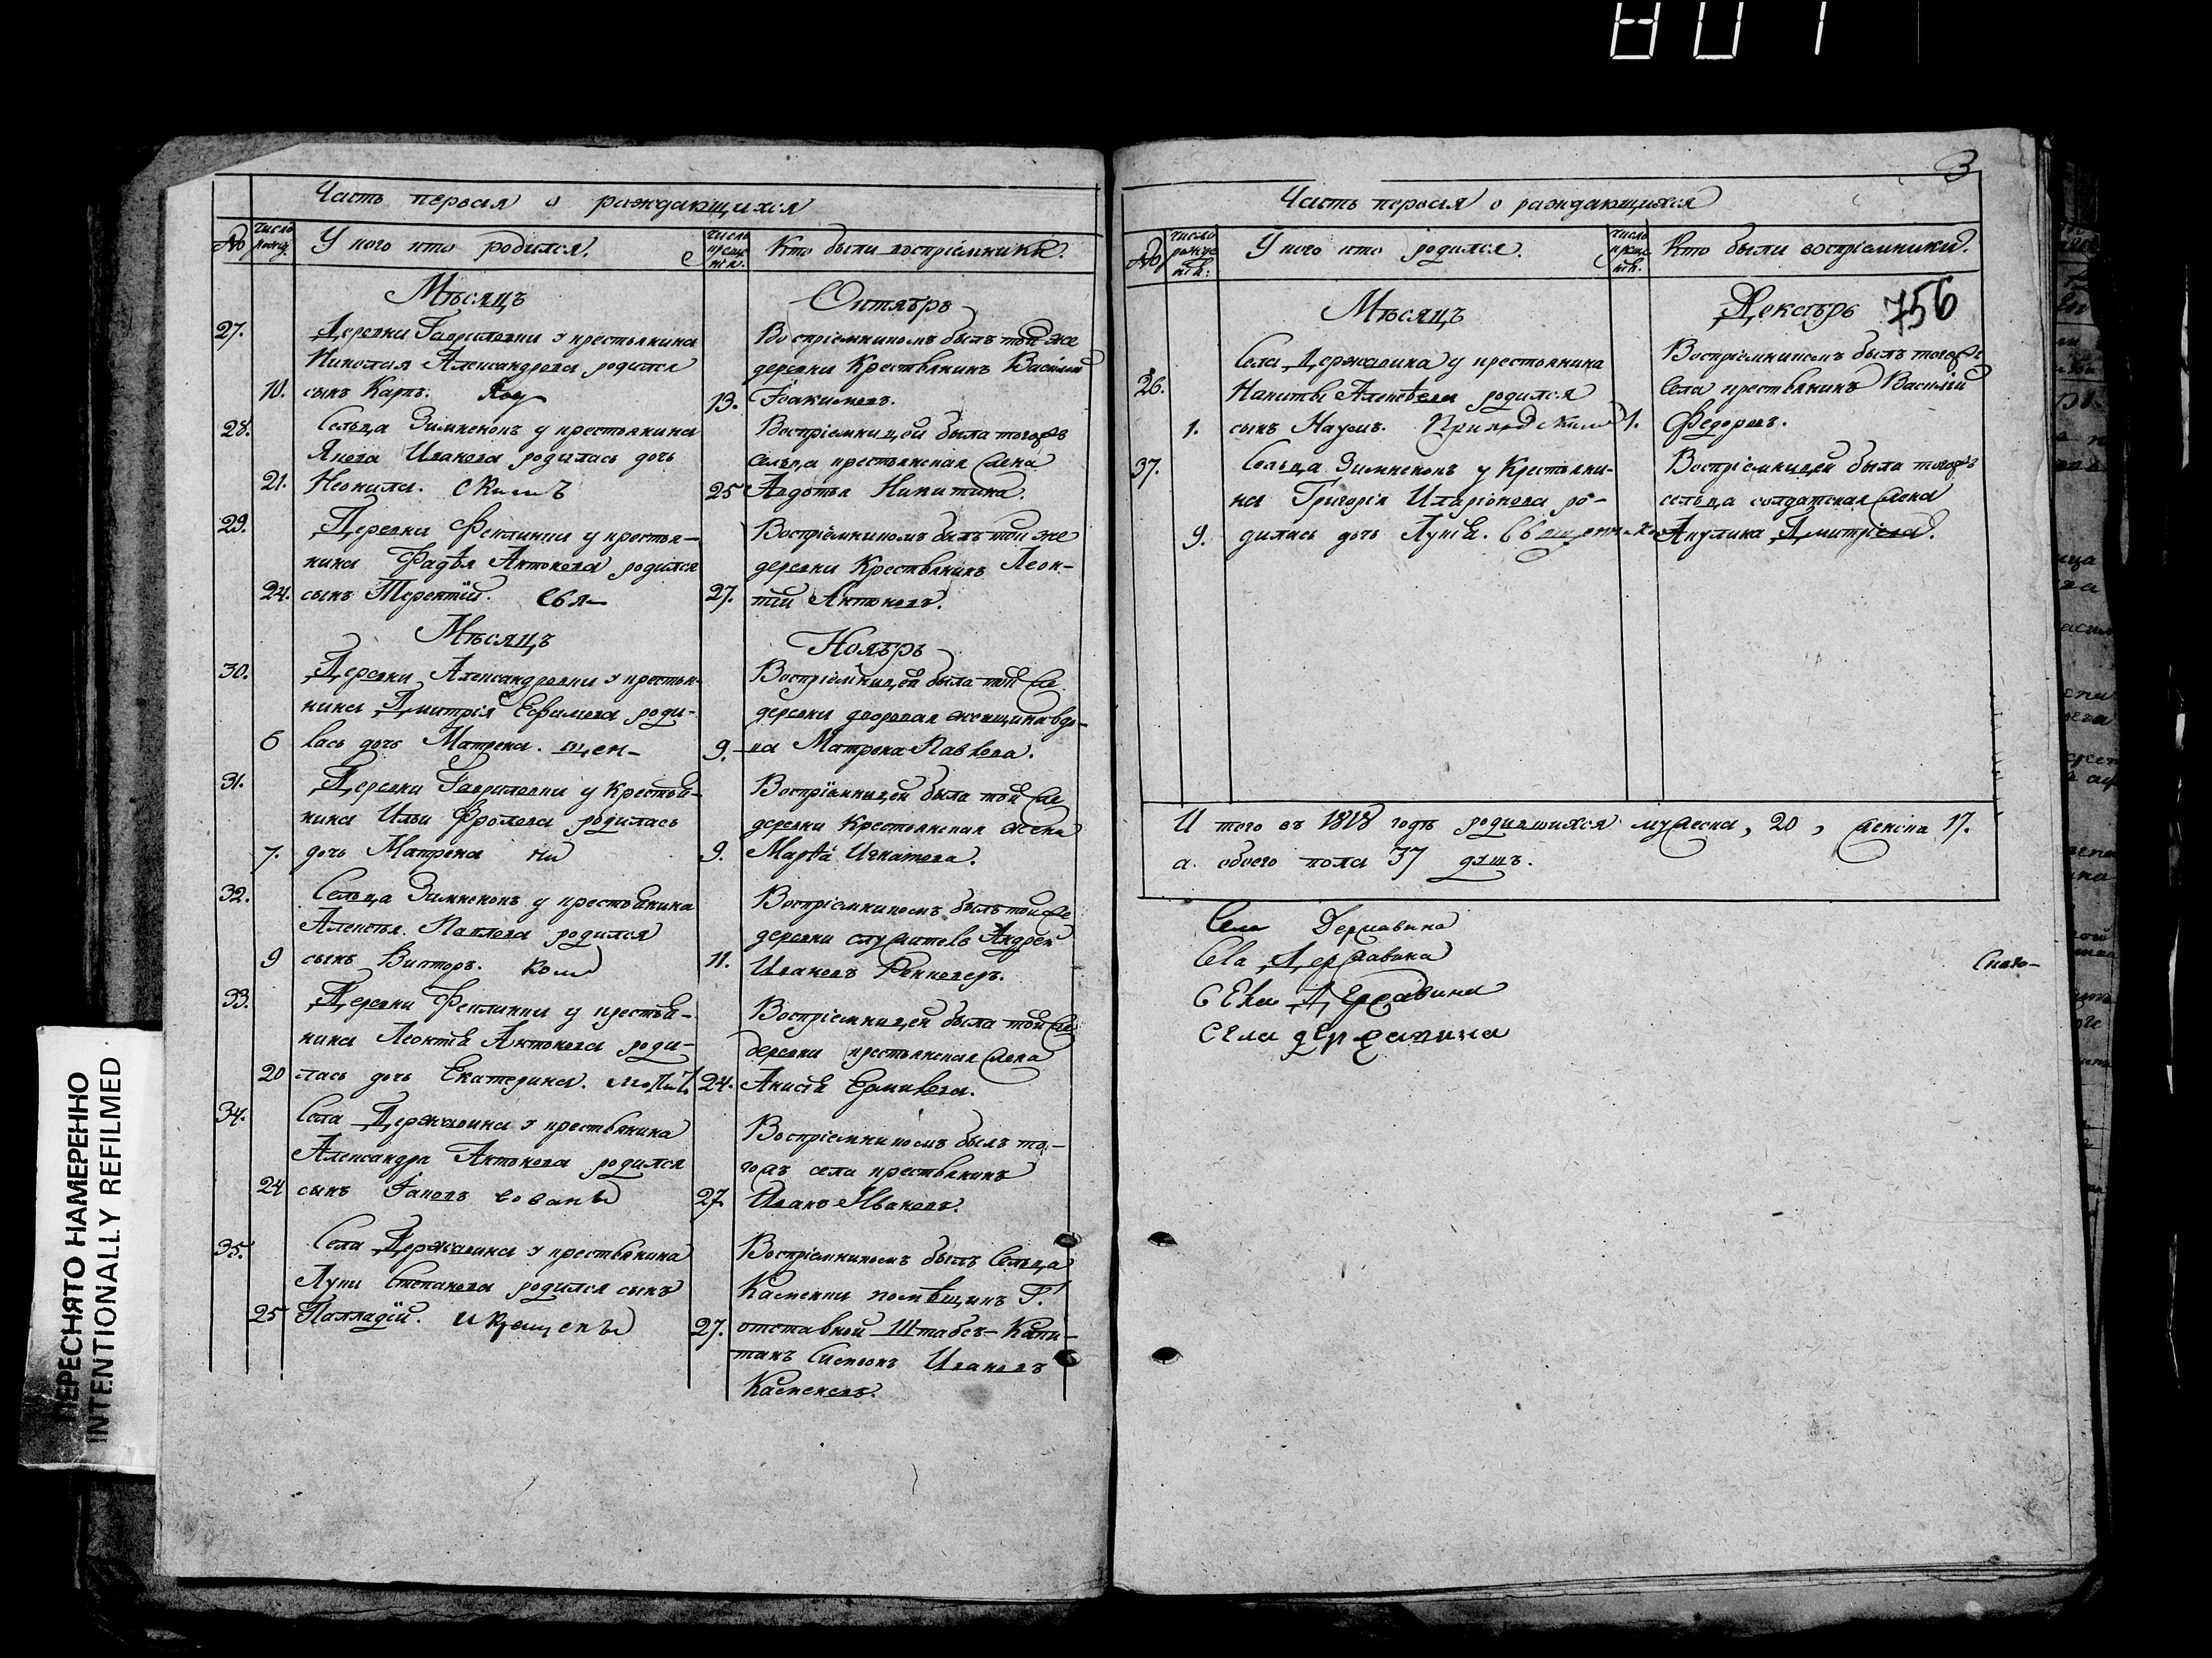 801
ПЕРЕСНЯТО НАМЕРЕННО
INTENTIONALLY REFILMED
Часть первая о раждающихся
№ число рожд. У кого кто родился. число креще нiя. Кто были воспрiемники.
Мѣсяцъ Октябрь
27. Деревни Гавриловки у крестьянина
Николая Александрова родился
10. сынъ Карпъ.
13. Воспрiемникомъ былъ той же
деревни Крестьянинъ Василий
Iоакимовъ.
28. Сельца Зимненокъ у крестьянина
Якова Иванова родилась дочь
21. Неонила. скимъ
25 Воспрiемницей была тогожъ
сельца крестьянская жена
Авдотья Никитина.
29. Деревни Феклинки у крестья-
нина Фадѣя Антонова родился
24. сынъ Терентiй. Свя-
27. Воспрiемникомъ былъ той же
деревни Крестьянинъ Леон-
тiй Антоновъ.
Мѣсяцъ Ноябрь
30. Деревни Александровки у крестья-
нина Дмитрiя Ефимова роди-
6 лась дочь Матрена. щен-
9. Воспрiемницей была той же
деревни дворовая женщина вдо-
ва Матрена Павлова.
31. Деревни Гавриловки у Крестья-
нина Ильи Фролова родилась
7. дочь Матрена ни
9. Воспрiемницей была той же
деревни Крестьянская жена
Марѳа Игнатова.
32. Сельца Зимненокъ у крестьянина
Алексѣя Павлова родился
9 сынъ Викторъ. комъ
11. Воспрiемникомъ былъ той же
деревни служитель Андрей
Ивановъ
33. Деревни Феклинки у крестья-
нина Леонтiя Антонова роди-
20 лась дочь Екатерина.
24. Воспрiемницей была той же
деревни крестьянская жена
Анисiя Ермилова.
34. Села Державина у крестьянина
Александра Антонова родился
24 сынъ Iаковъ
27. Воспрiемникомъ былъ то-
гожъ села крестьянинъ
Иванъ Ивановъ.
35. Села Державина у крестьянина
Луки Степанова родился сынъ
25 Палладiй. и крещены
27. Воспрiемникомъ былъ Сельца
Каменки помѣщикъ Г.
отставной Штабсъ-Капи-
танъ Симеонъ Ивановъ
Каменевъ.
3
Часть первая о раждающихся
№ число рожде нiя: У кого кто родился. число креще нiя. Кто были воспрiемники.
Мѣсяцъ Декабрь 756
26. Села Державина у крестьянина
Никиты Алексѣева родился
1. сынъ Наумъ. Приходскимъ
1. Воспрiемникомъ былъ тогожъ
села крестьянинъ Василий
Федоровъ.
37. Сельца Зимненокъ у Крестьяни-
на Григорiя Иларiонова ро-
9. дилась дочь Лукiя. Священнико
Воспрiемницей была тогожъ
сельца солдатская жена
Акулина Дмитрiева.
И того въ 1818 годѣ родившихся мужеска, 20, женска 17.
а обоего пола 37 душъ.
Села Державина
Села Державина
Села Державина
Села Державина